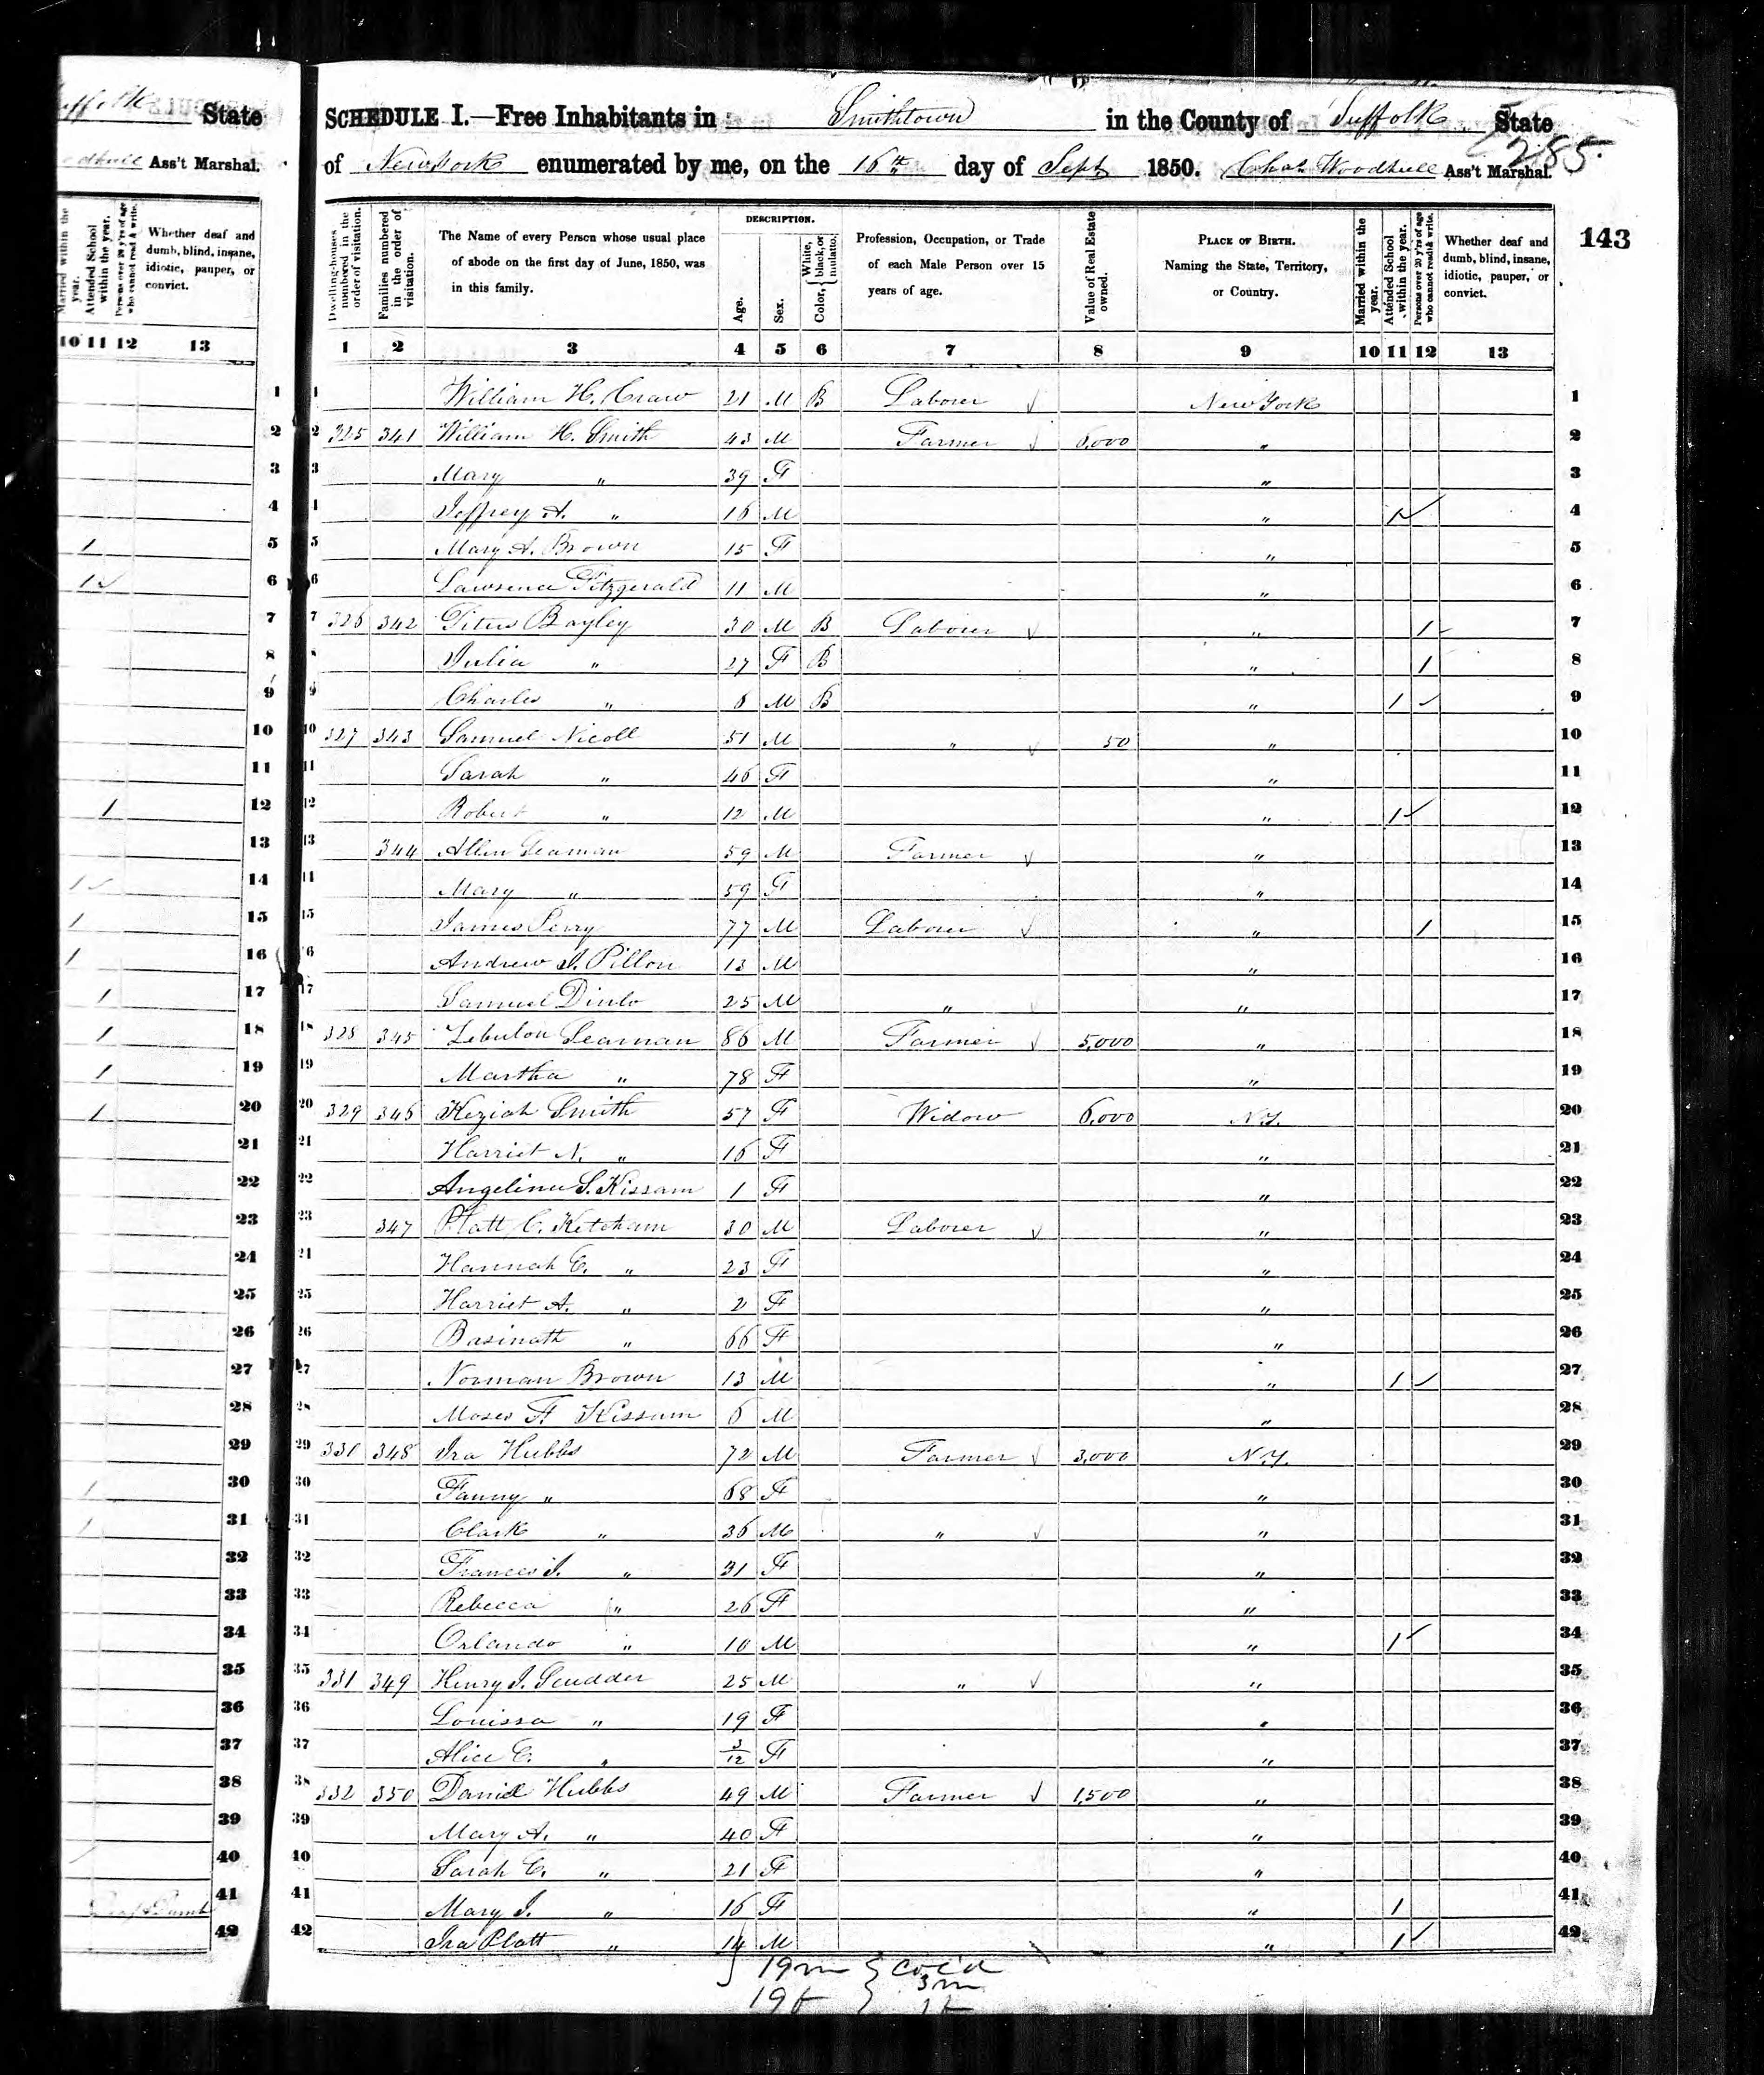 uffolk State
odhull Ass't Marshal.
SCHEDULE I.—Free Inhabitants in Smithtown in the County of Suffolk State
285.
of New York enumerated by me, on the 16th day of Sept 1850. Chas Woodhull Ass't Marshal.
143
Married within the year.
Attended School within the year.
Persons over 20 y'rs of age who cannot read & write.
Whether deaf and dumb, blind, insane, idiotic, pauper, or convict.
10 11 12 13
Dwelling-houses numbered in the order of visitation.
Families numbered in the order of visitation.
The Name of every Person whose usual place of abode on the first day of June, 1850, was in this family.
DESCRIPTION.
Age.
Sex.
Color, { White, black, or mulatto.
Profession, Occupation, or Trade of each Male Person over 15 years of age.
Value of Real Estate owned.
PLACE OF BIRTH. Naming the State, Territory, or Country.
Married within the year.
Attended School within the year.
Persons over 20 y'rs of age who cannot read & write.
Whether deaf and dumb, blind, insane, idiotic, pauper, or convict.
1 2 3 4 5 6 7 8 9 10 11 12 13
1 1 William H. Craw 21 M B Laborer ✓ New York 1
2 2 325 341 William H. Smith 43 M Farmer ✓ 6,000 " 2
3 3 Mary " 39 F " 3
4 4 Jeffrey A. " 16 M " 1 ✓ 4
1 5 5 Mary A. Brown 15 F " 5
1 ✓ 6 6 Lawrence Fitzgerald 11 M " 6
7 7 326 342 Titus Bayley 30 M B Laborer ✓ " 1 7
8 8 Julia " 27 F B " 1 8
9 9 Charles " M B " 1 ✓ 9
10 10 327 343 Samuel Nicoll 51 M " ✓ 50 " 10
11 11 Sarah " 46 F " 11
1 12 12 Robert " 12 M " 1 ✓ 12
13 13 344 Allen Seaman 59 M Farmer ✓ " 13
1 ✓ 14 14 Mary " 59 F " 14
1 15 15 James Perry 77 M Laborer ✓ " 1 15
1 16 16 Andrew J. Pillon 13 M " 16
1 17 17 Samuel 25 M " ✓ " 17
1 18 18 328 345 Zebulon Seaman 86 M Farmer ✓ 5,000 " 18
1 19 19 Martha " 78 F " 19
1 20 20 329 346 Keziah Smith 57 F Widow 6,000 N.Y. 20
21 21 Harriet N. " 16 F " 21
22 22 Angelina S. Kissam 1 F " 22
23 23 347 Platt C. Ketcham 30 M Laborer ✓ " 23
24 24 Hannah E. " 23 F " 24
25 25 Harriet A. " 2 F " 25
26 26 Basinath " 66 F " 26
27 27 Norman Brown 13 M " 1 ✓ 27
28 28 Moses F Kissam 6 M " 28
29 29 331 348 Ira Hubbs 72 M Farmer ✓ 3,000 N.Y. 29
1 30 30 Fanny " 68 F " 30
1 31 31 Clark " 36 M " ✓ " 31
32 32 Frances J. " 31 F " 32
33 33 Rebecca " 26 F " 33
34 34 Orlando " 10 M " 1 ✓ 34
35 35 331 349 Henry J. Scudder 25 M " ✓ " 35
36 36 Louissa " 19 F " 36
37 37 Alice C. " 3/12 F " 37
38 38 332 350 Daniel Hubbs 49 M Farmer ✓ 1,500 " 38
39 39 Mary A. " 40 F " 39
40 40 Sarah E. " 21 F " 40
41 41 Mary J. " 16 F " 1 41
42 42 Ira Platt " 14 M " 1 ✓ 42
19 m } col'd
19 f } 3 m
1 f